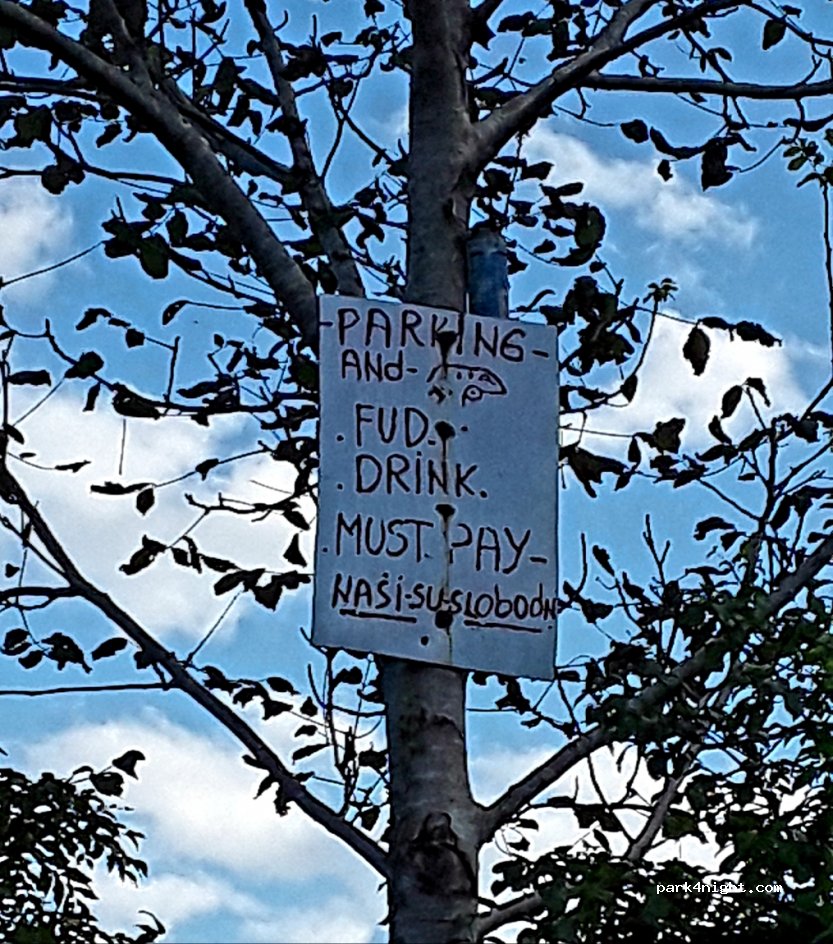 -PARKING-
AND-
. FUD. .
. DRINK.
. MUST. PAY-
NAŠI-SU-SLOBODNI
park4night.com